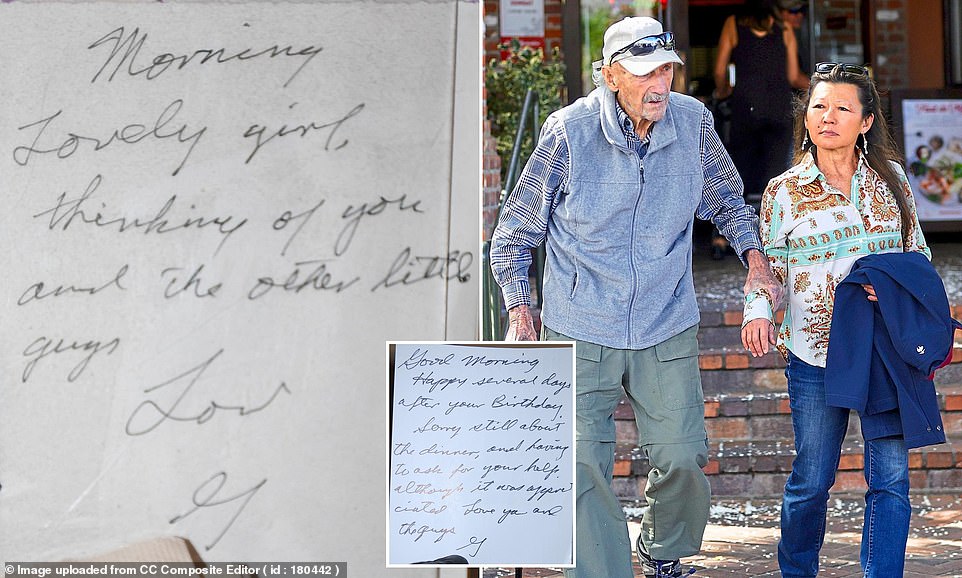 Morning
Lovely girl,
thinking of you
and the other little
guys
Love
G
Good Morning
Happy several days
after your Birthday.
Sorry still about
the dinner, and having
to ask for your help
although it was appre
ciated Love ya and
the guys
G
© Image uploaded from CC Composite Editor ( id : 180442 )